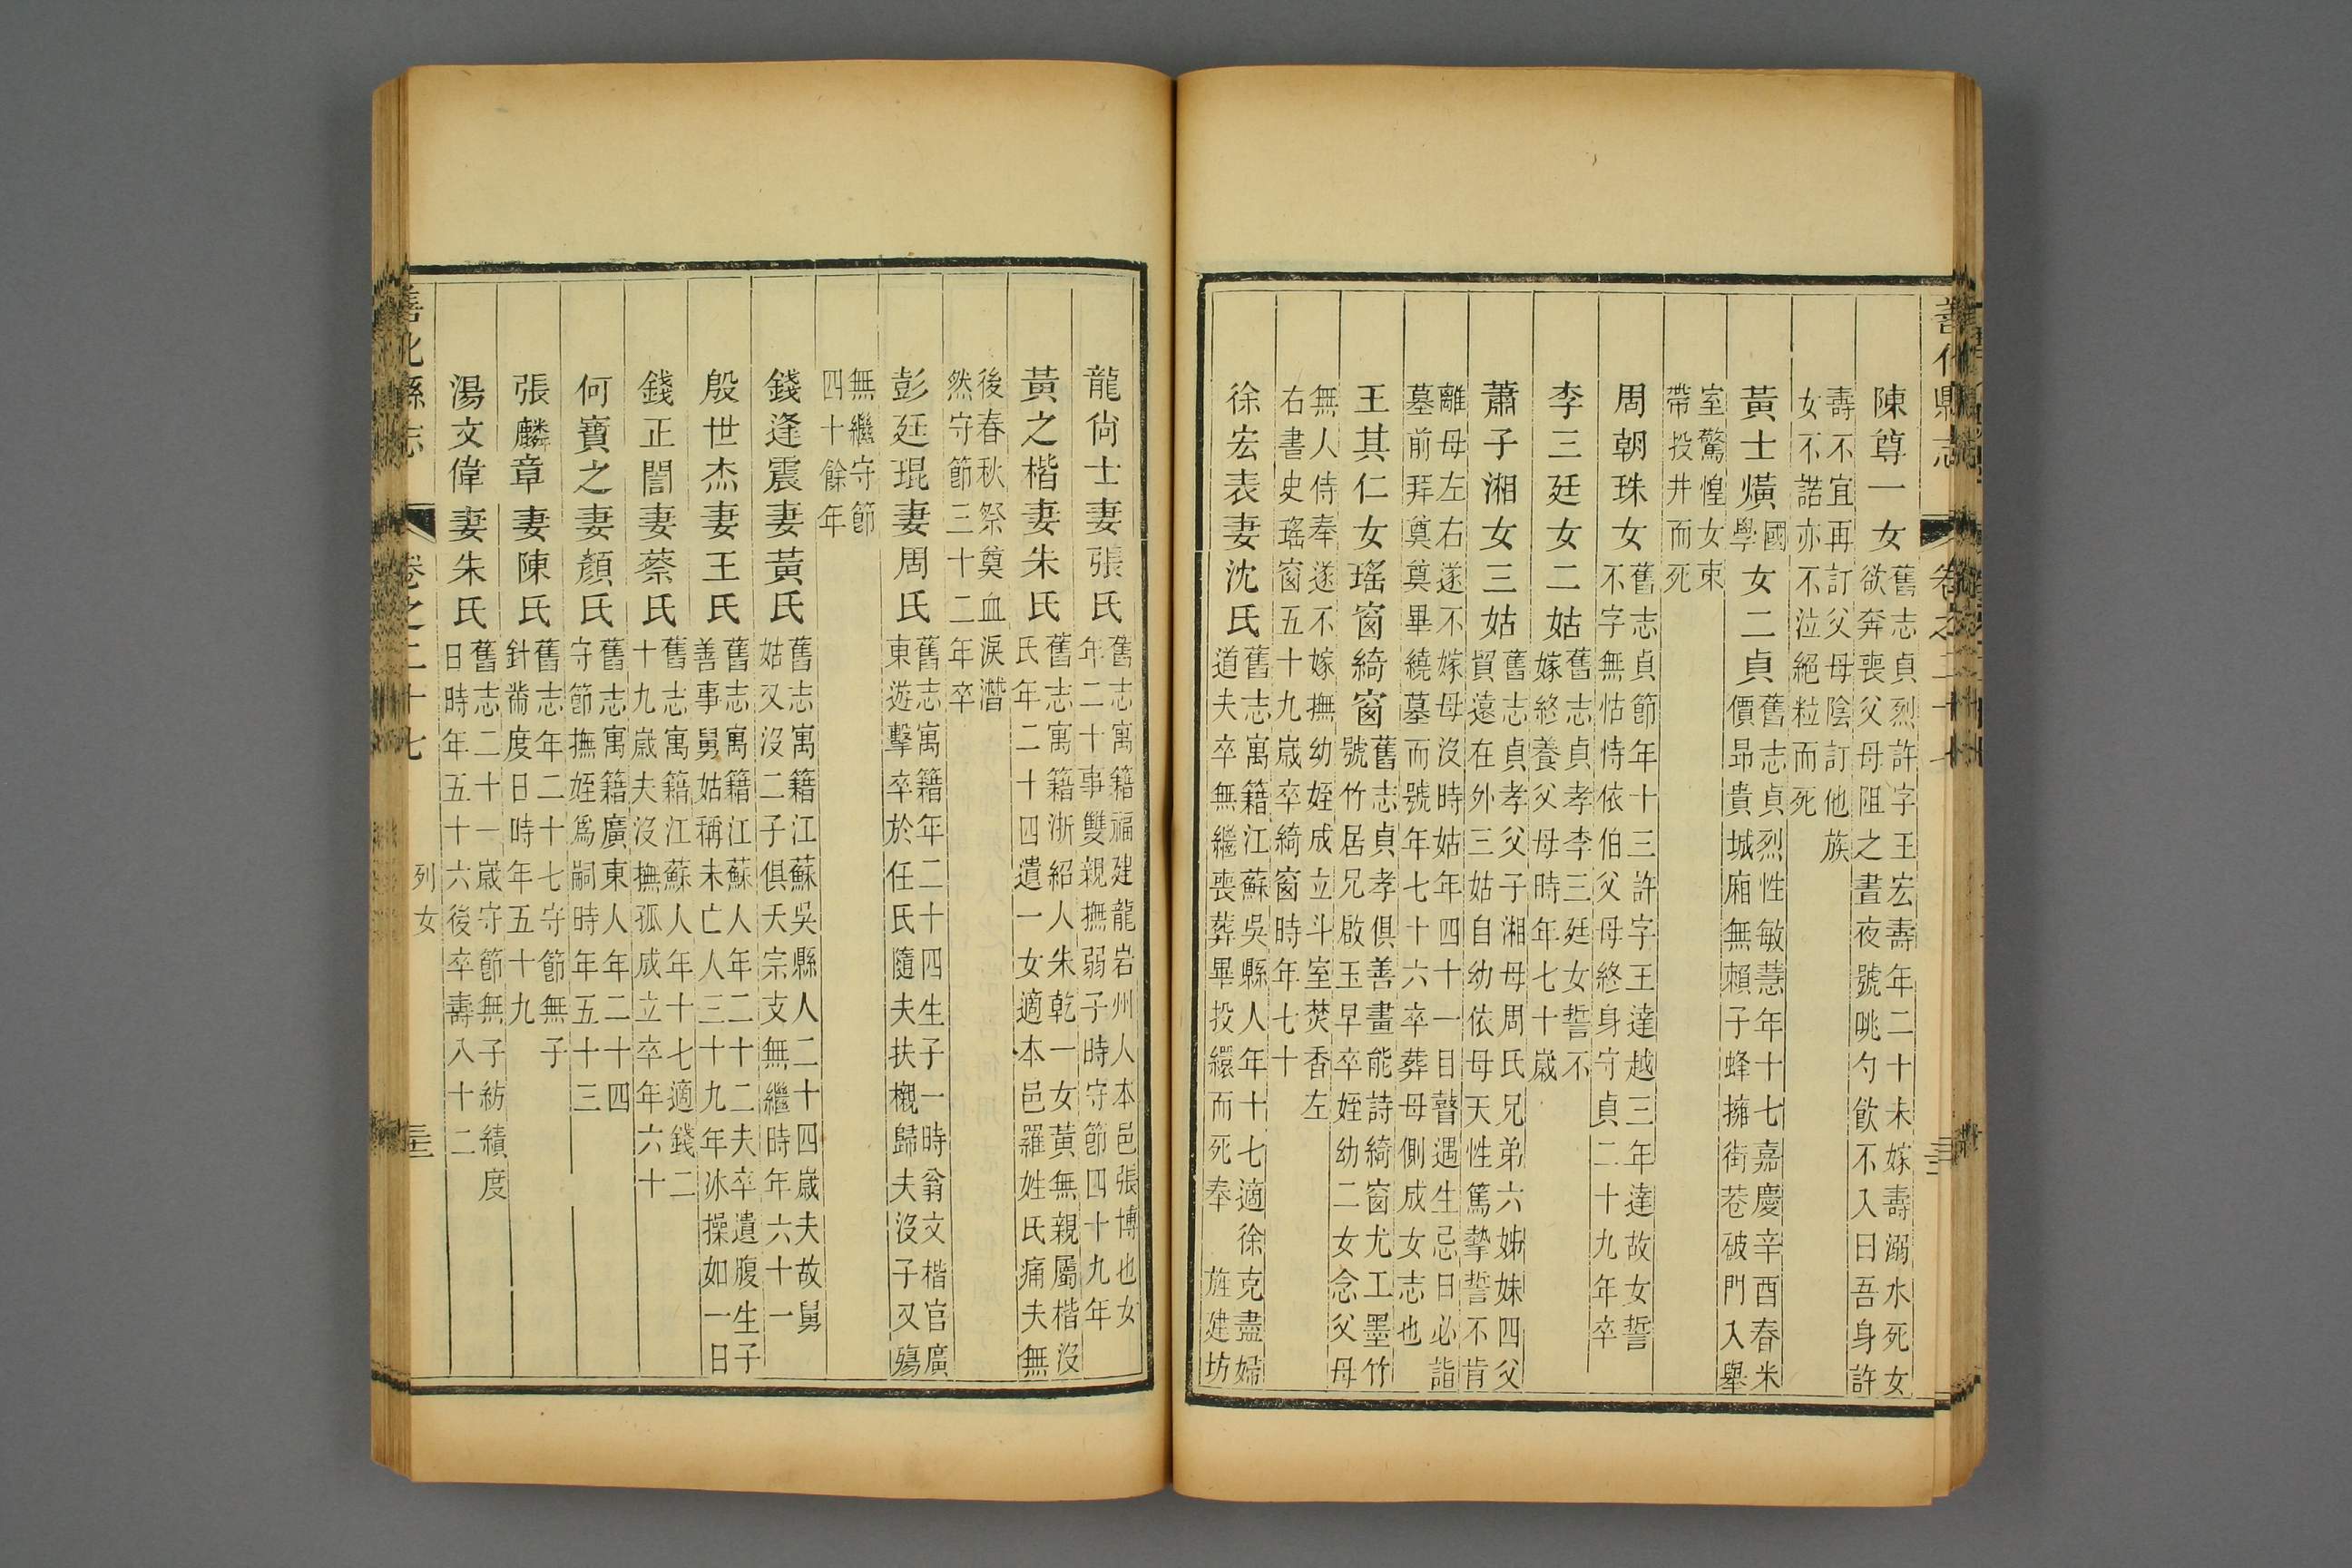 善化縣志 卷之二十七
陳尊一女 舊志貞烈許字王宏壽年二十未嫁壽溺水死女
欲奔喪父母阻之晝夜號咷勺飲不入曰吾身許
壽不宜再訂父母陰訂他族
女不諾亦不泣絕粒而死
黃士熿 國學 女二貞 舊志貞烈性敏慧年十七嘉慶辛酉春米
價昂貴城廂無賴子蜂擁街巷破門入舉
室驚惶女束
帶投井而死
周朝珠女 舊志貞節年十三許字王達越三年達故女誓
不字無怙恃依伯父母終身守貞二十九年卒
李三廷女二姑 舊志貞孝李三廷女誓不
嫁終養父母時年七十歲
蕭子湘女三姑 舊志貞孝父子湘母周氏兄弟六姊妹四父
貿遠在外三姑自幼依母天性篤摯誓不肯
離母左右遂不嫁母沒時姑年四十一目瞽遇生忌日必詣
墓前拜奠奠畢繞墓而號年七十六卒葬母側成女志也
王其仁女瑤窗綺窗 舊志貞孝俱善畫能詩綺窗尤工墨竹
號竹居兄啟玉早卒姪幼二女念父母
無人侍奉遂不嫁撫幼姪成立斗室焚香左
右書史瑤窗五十九歲卒綺窗時年七十
徐宏表妻沈氏 舊志寓籍江蘇吳縣人年十七適徐克盡婦
道夫卒無繼喪葬畢投繯而死奉 旌建坊
龍尙士妻張氏 舊志寓籍福建龍岩州人本邑張博也女
年二十事雙親撫弱子時守節四十九年
黃之楷妻朱氏 舊志寓籍浙紹人朱乾一女黃無親屬楷沒
氏年二十四遺一女適本邑羅姓氏痛夫無
後春秋祭奠血淚潸
然守節三十二年卒
彭廷琨妻周氏 舊志寓籍年二十四生子一時翁文楷官廣
東遊擊卒於任氏隨夫扶櫬歸夫沒子又殤
無繼守節
四十餘年
錢逢震妻黃氏 舊志寓籍江蘇吳縣人二十四歲夫故舅
姑又沒二子俱夭宗支無繼時年六十一
殷世杰妻王氏 舊志寓籍江蘇人年二十二夫卒遺腹生子
善事舅姑稱未亡人三十九年冰操如一日
錢正誾妻蔡氏 舊志寓籍江蘇人年十七適錢二
十九歲夫沒撫孤成立卒年六十
何寶之妻顏氏 舊志寓籍廣東人年二十四
守節撫姪爲嗣時年五十三
張麟章妻陳氏 舊志年二十七守節無子
針黹度日時年五十九
湯文偉妻朱氏 舊志二十一歲守節無子紡績度
日時年五十六後卒壽八十二
善化縣志 卷之二十七 列女 三十三